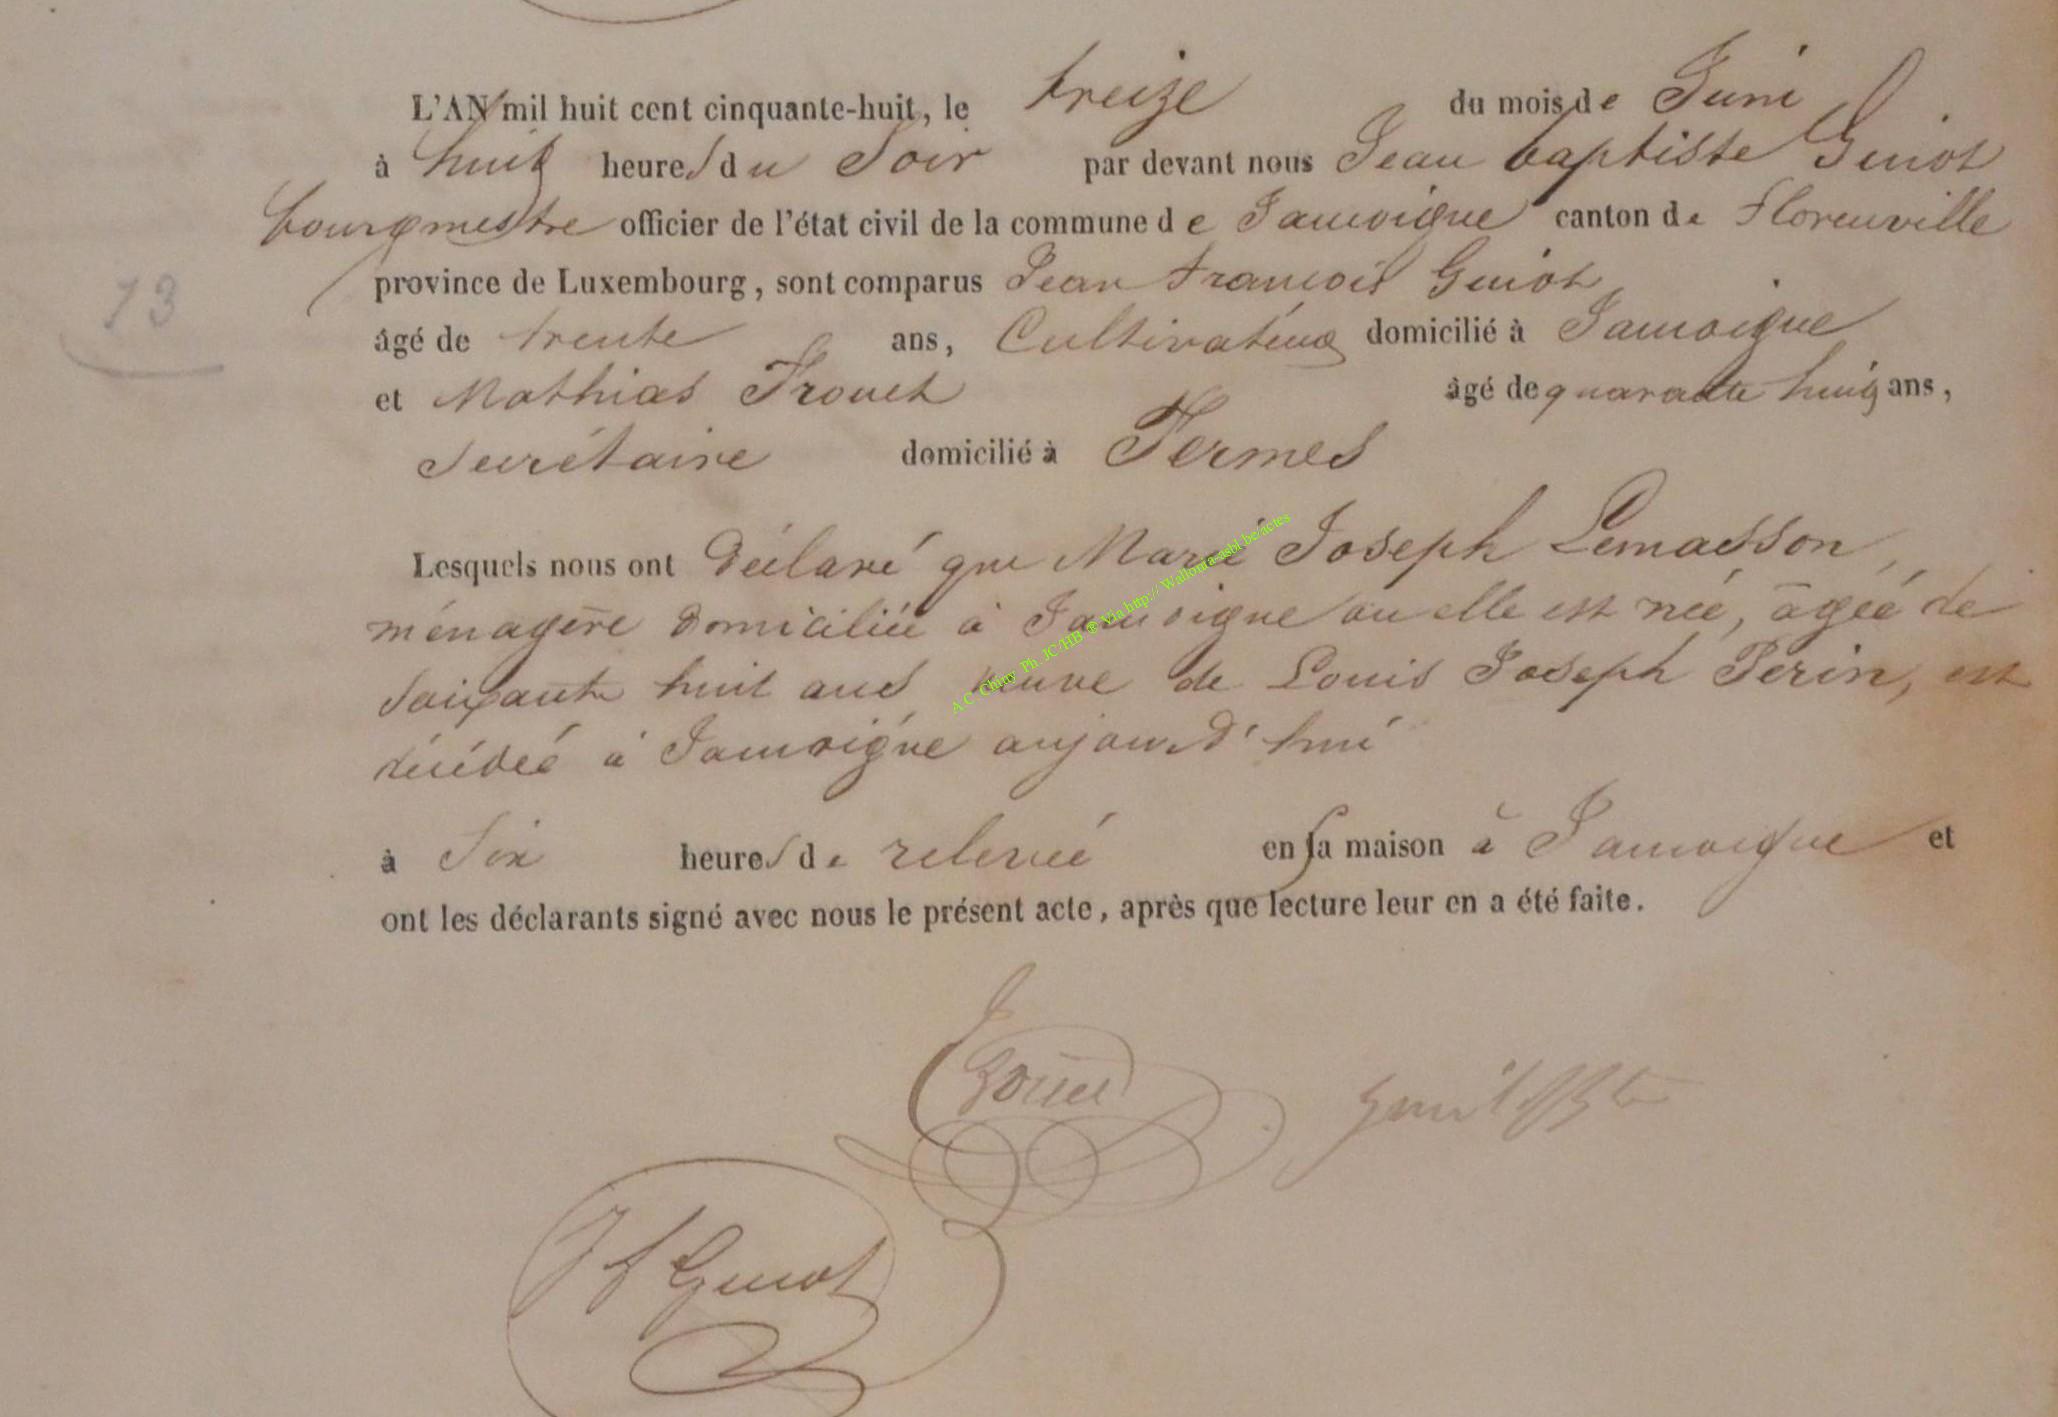 L'AN mil huit cent cinquante-huit, le treize du mois de Juni
à huit heures du Soir par devant nous Jean baptiste Guiot
bourgmestre officier de l'état civil de la commune de Jamoigne canton de Florenville
province de Luxembourg, sont comparus Jean François Guiot
13
âgé de trente ans, Cultivateur domicilié à Jamoigne
et Mathias Trouet âgé de quarante huit ans,
Secrétaire domicilié à Termes
Lesquels nous ont Déclaré que Marie Joseph Lemasson,
ménagère Domiciliée à Jamoigne ou elle est née, âgée de
Soixante huit ans, veuve de Louis Joseph Perin, est
décédée à Jamoigne aujourd'hui
à Six heures de relevée en sa maison à Jamoigne et
ont les déclarants signé avec nous le présent acte, après que lecture leur en a été faite.
JF Guiot
A.C. Chiny Ph. JC/HB ® Via http://Wallonia-asbl.be/actes